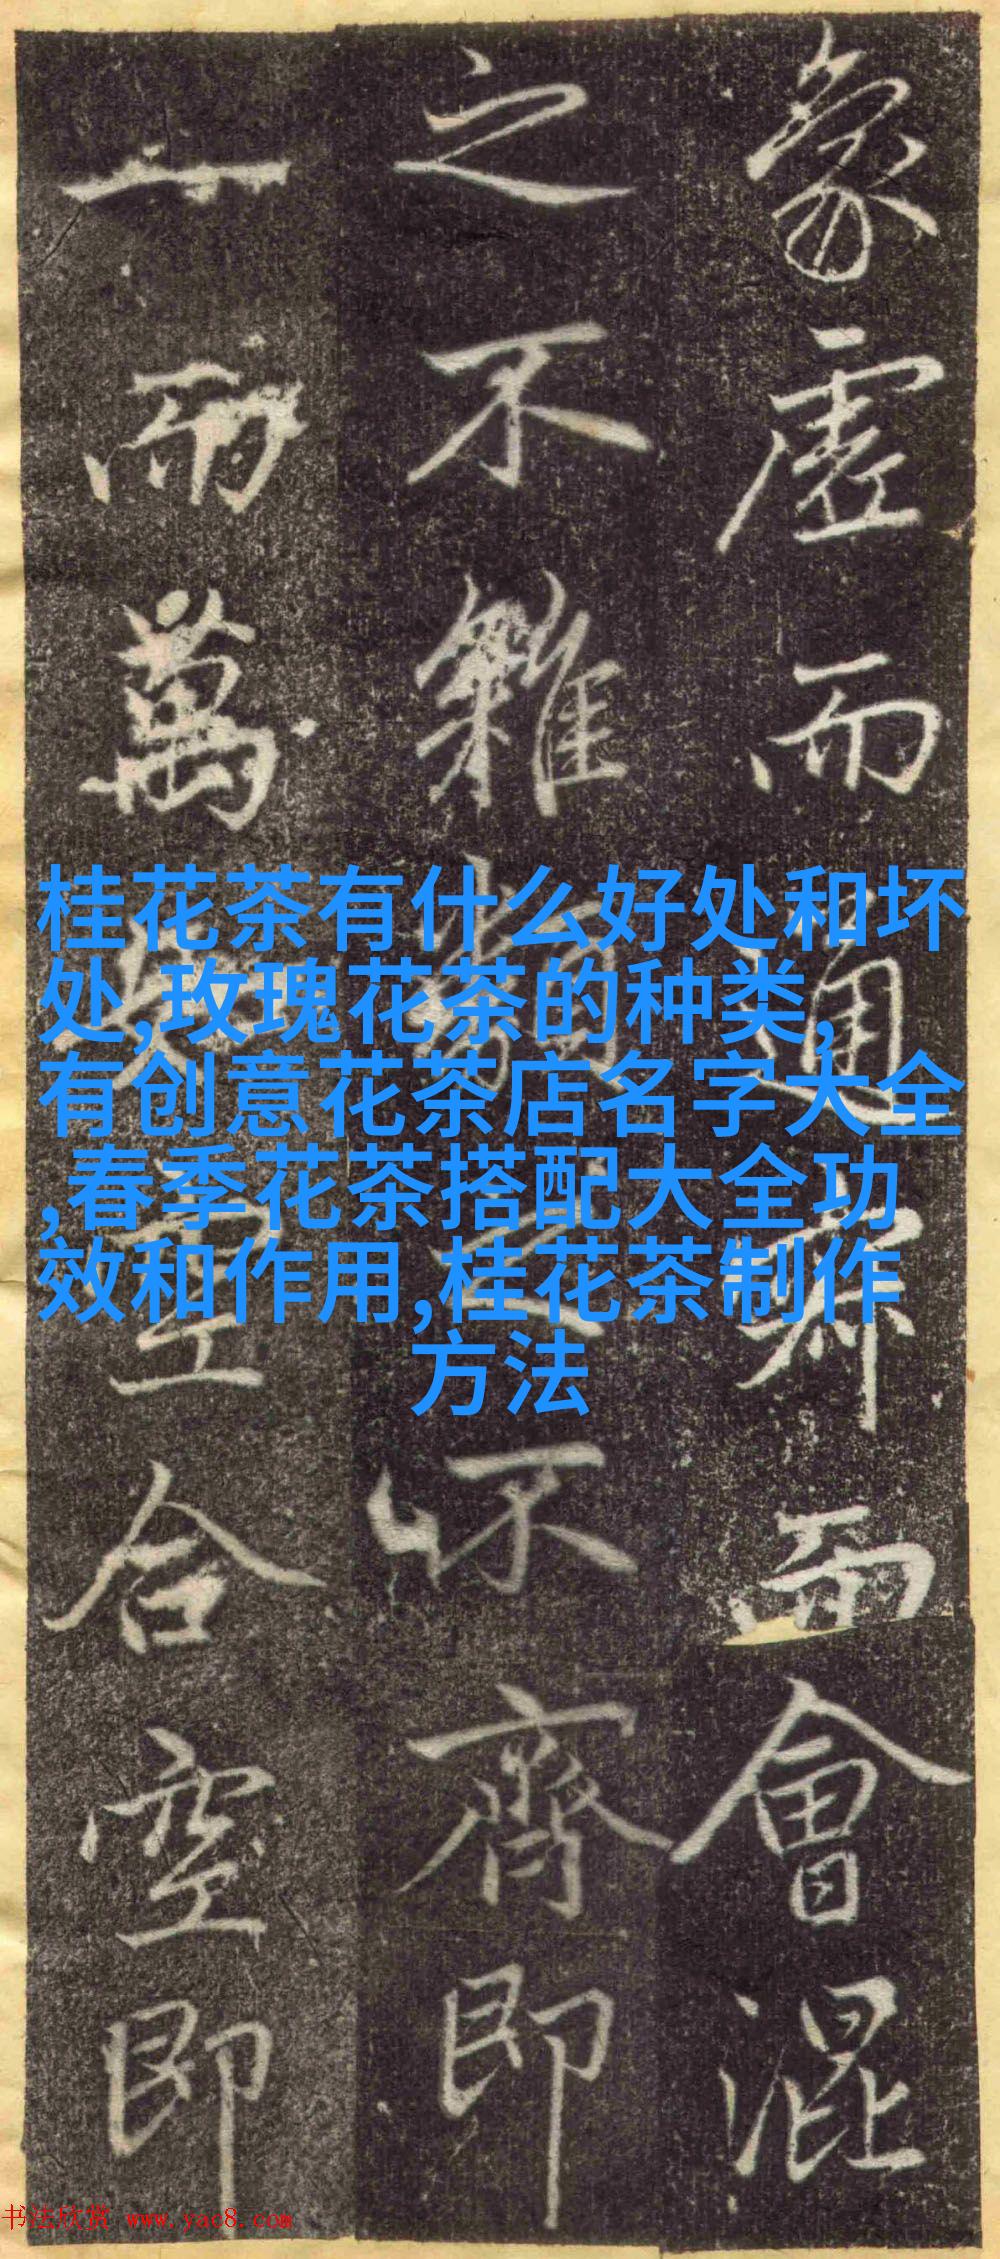 象虛而通鄰而會混
之不雜類之不齊即
一而萬
合空即
桂花茶有什么好处和坏
处,玫瑰花茶的种类,
有创意花茶店名字大全
,春季花茶搭配大全功
效和作用,桂花茶制作
方法
书法欣赏 www.yac8.com